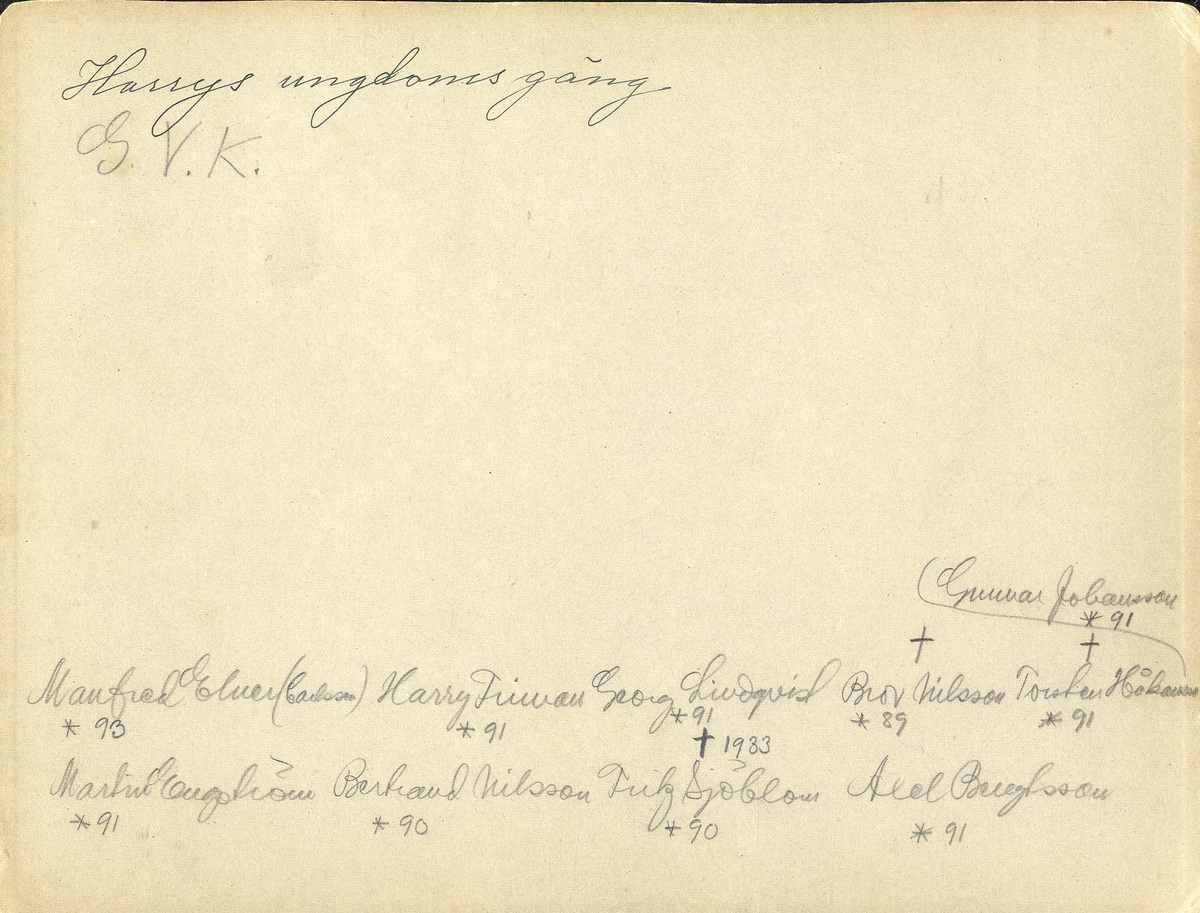 Harrys ungdoms gäng
G. V. K.
(Gunnar Johansson
* 91
† †
Manfred Elner (Carlsson) Harry Friman Georg Lindqvist Bror Nilsson Torsten Håkanson
* 93 * 91 * 91 * 89 * 91
† 1933
Martin Engström Bertrand Nilsson Fritz Sjöblom Axel Bengtsson
* 91 * 90 * 90 * 91